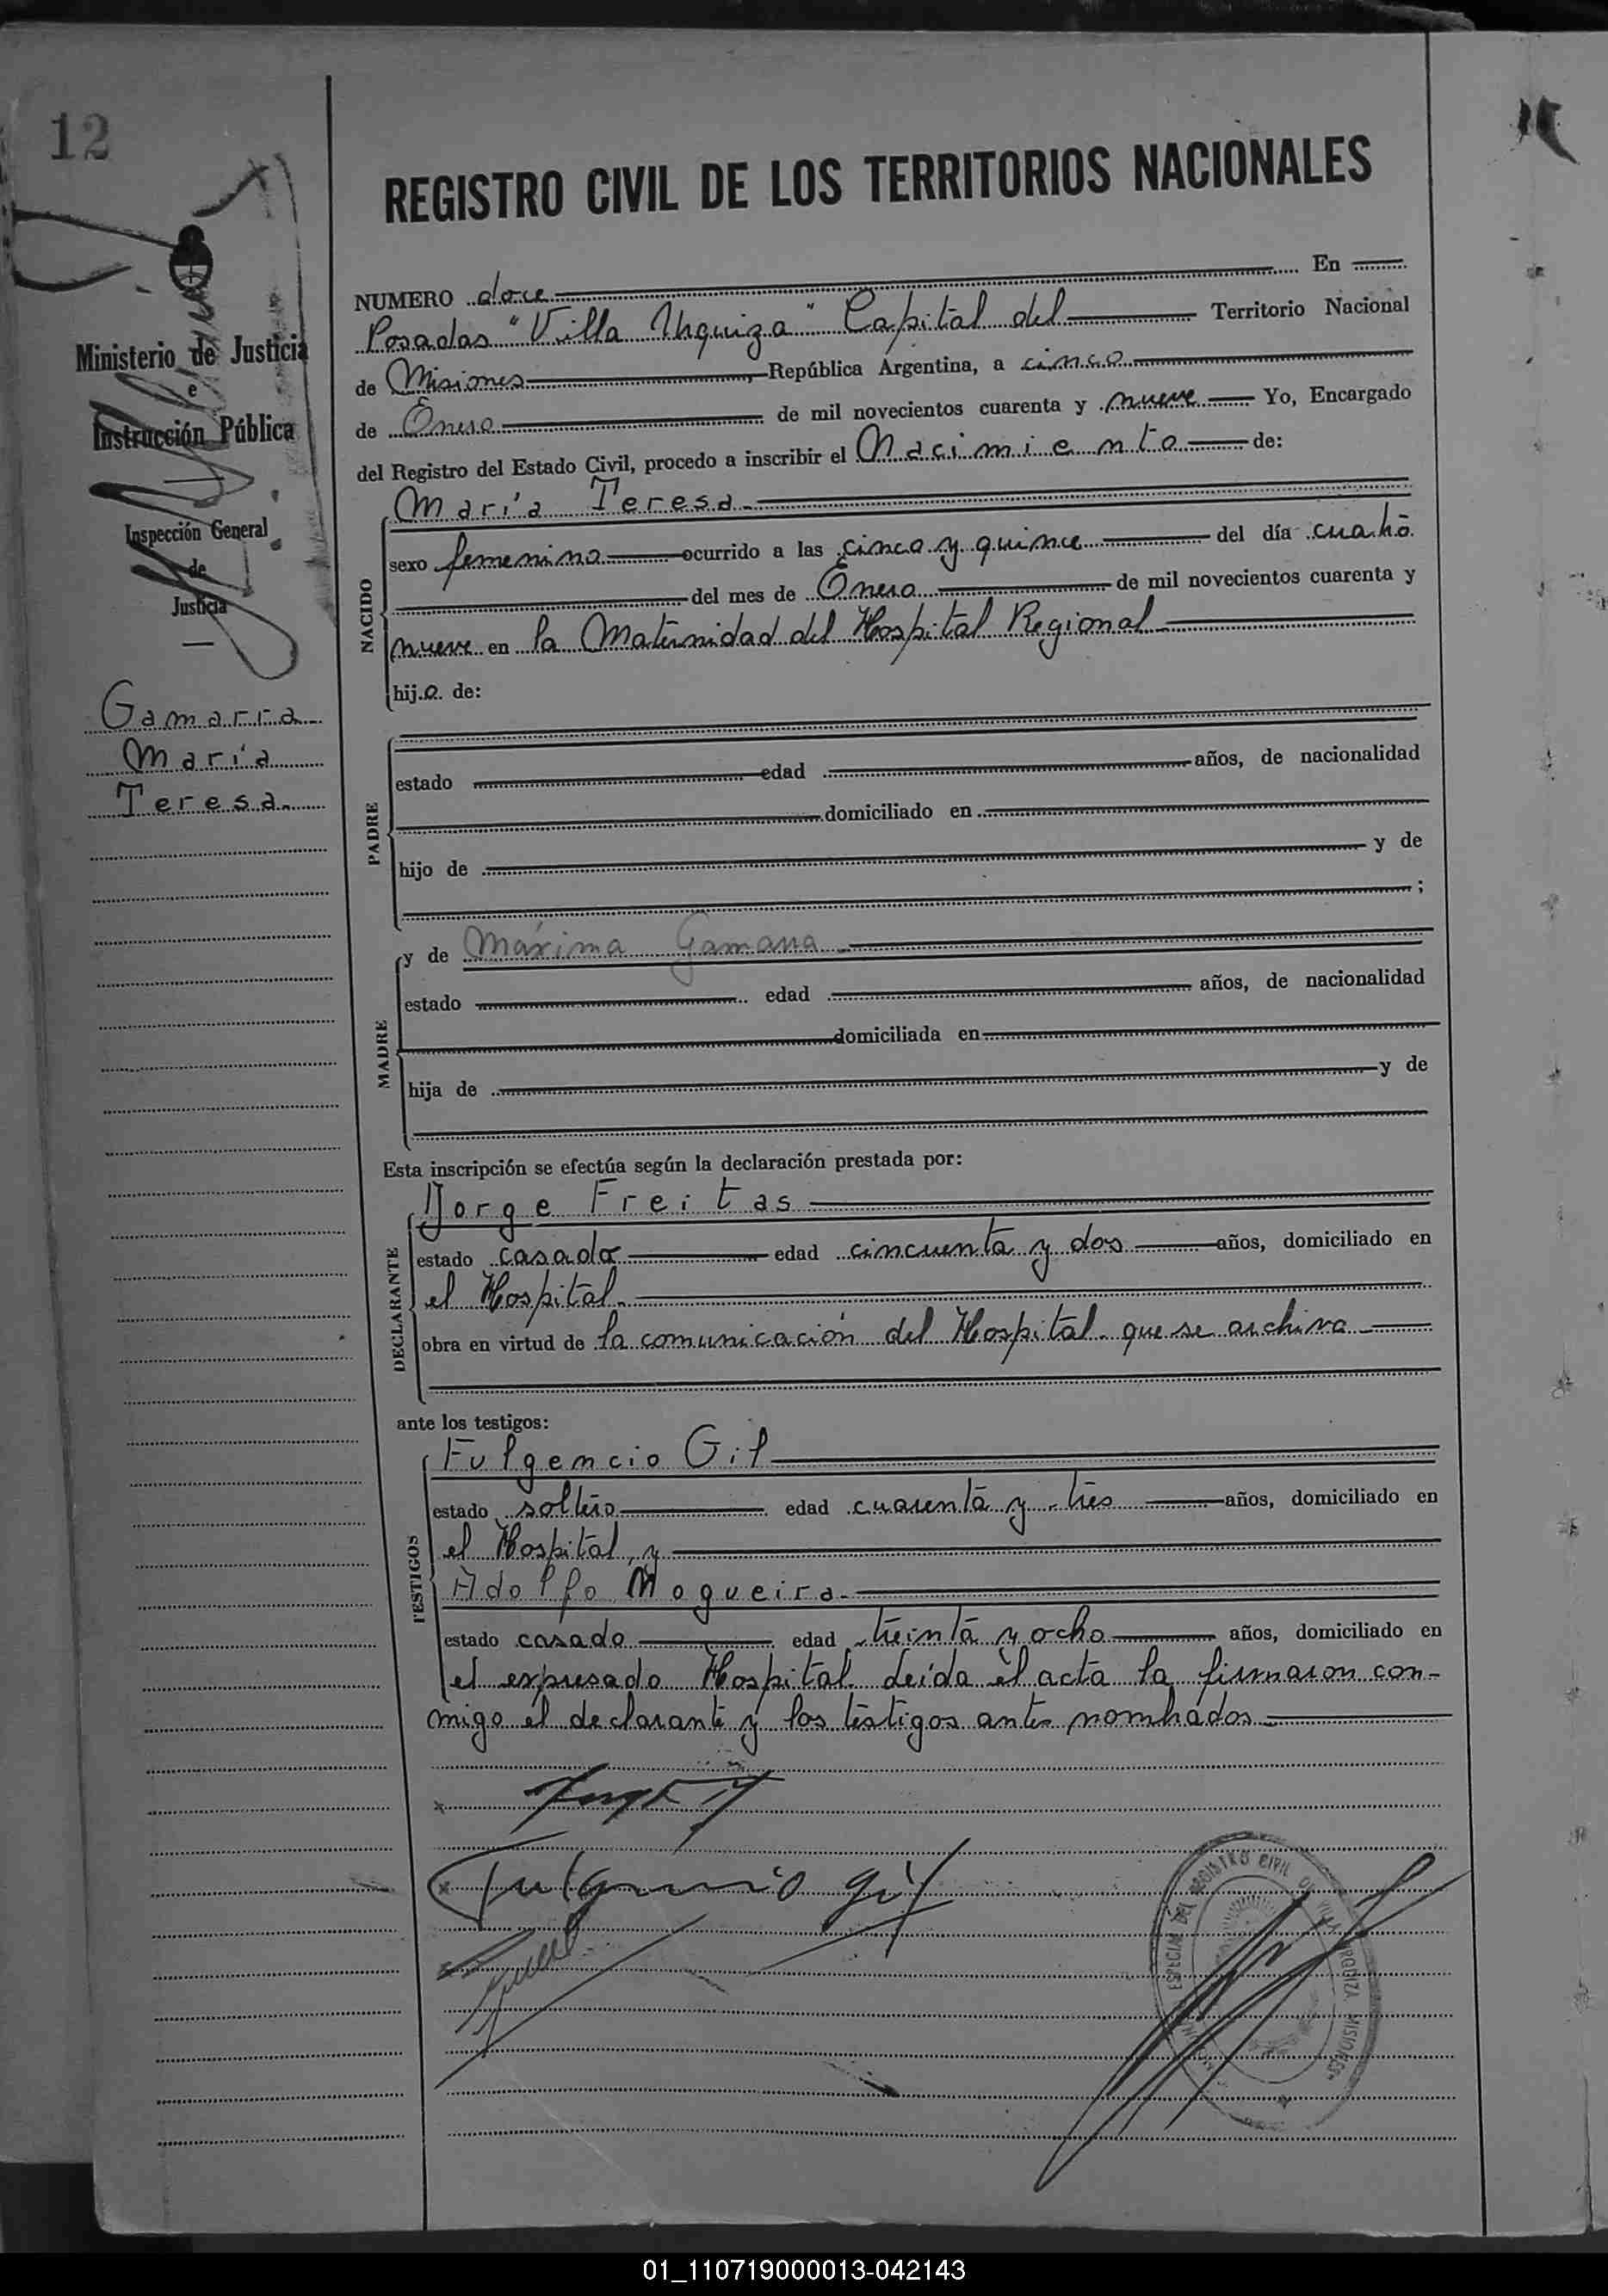 12
REGISTRO CIVIL DE LOS TERRITORIOS NACIONALES
Ministerio de Justicia
e
Instrucción Pública
Inspección General
de
Justicia
Gamarra
María
Teresa
NUMERO doce En
Posadas "Villa Urquiza" Capital del Territorio Nacional
de Misiones, República Argentina, a cinco
de Enero de mil novecientos cuarenta y nueve Yo, Encargado
del Registro del Estado Civil, procedo a inscribir el Nacimiento de:
NACIDO
María Teresa
sexo femenino ocurrido a las cinco y quince del día cuatro
del mes de Enero de mil novecientos cuarenta y
nueve en la Maternidad del Hospital Regional
hija de:
PADRE
estado edad años, de nacionalidad
domiciliado en
hijo de y de
;
MADRE
y de Máxima Gamarra
estado edad años, de nacionalidad
domiciliada en
hija de y de
Esta inscripción se efectúa según la declaración prestada por:
DECLARANTE
Jorge Freitas
estado casado edad cincuenta y dos años, domiciliado en
el Hospital
obra en virtud de la comunicación del Hospital que se archiva
ante los testigos:
TESTIGOS
Fulgencio Gil
estado soltero edad cuarenta y tres años, domiciliado en
el Hospital, y
Adolfo Nogueira
estado casado edad treinta y ocho años, domiciliado en
el expresado Hospital leída el acta la firmaron con-
migo el declarante y los testigos antes nombrados
Fulgencio Gil
ESPECIAL DEL REGISTRO CIVIL VILLA URQUIZA MISIONES
01_110719000013-042143